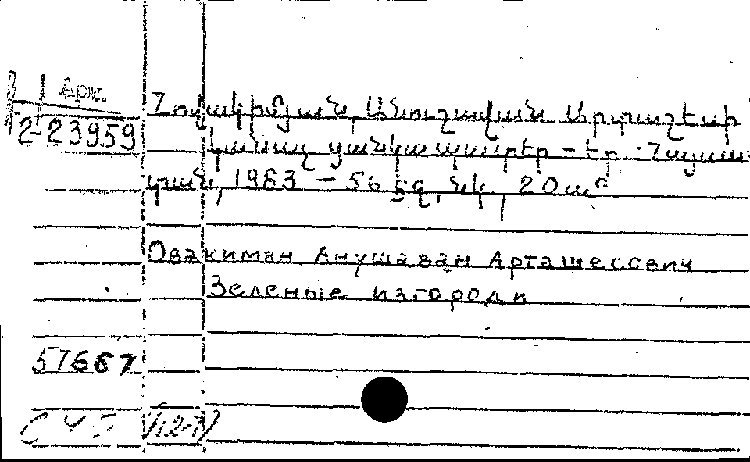 Арм.
2-23959
Հովակիմյան, Անուշավան Արտաշեսի
Կանաչ ցանկապատեր – Եր. Հայաս
տան, 1983 – 56 էջ, նկ., 20 սմ
Овакимян Анушаван Арташесович
Зеленые изгороди
57687